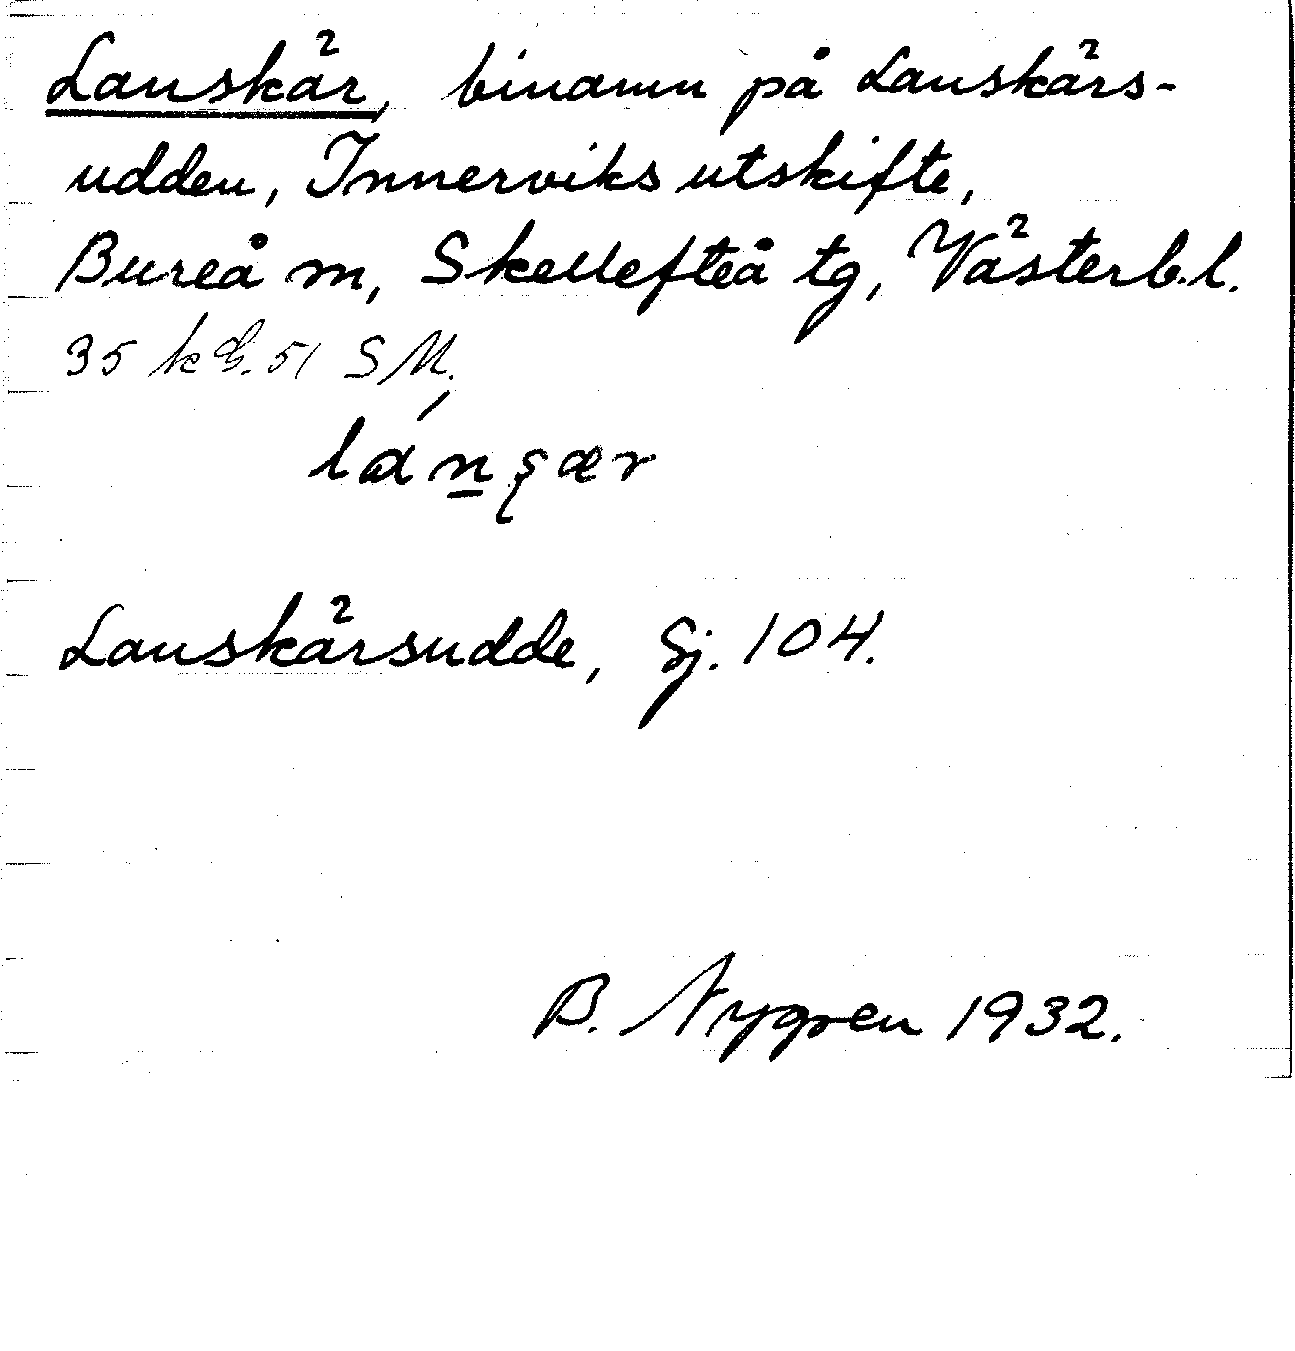 Lanskär, binamn på Lanskärs-
udden, Innerviks utskifte,
Bureå m, Skellefteå tg, Västerb. l.
35 k G. 51 SM.
Lanskärsudde, Sj. 104.
B. Nygren 1932.